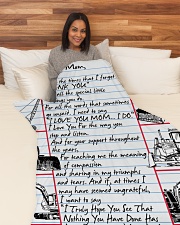 Mom,
the times that I forget
"THANK YOU"
all the special little
things you do,
For all the words that sometimes
go unsaid, I need to say
"I LOVE YOU MOM... I DO"
I Love You for the way you
stop and listen,
And for your support throughout
the years,
For teaching me the meaning
of compassion
and sharing in my triumphs
and tears. And if, at times I
may have seemed ungrateful,
I want to say
I Truly Hope You See That
Nothing You Have Done Has